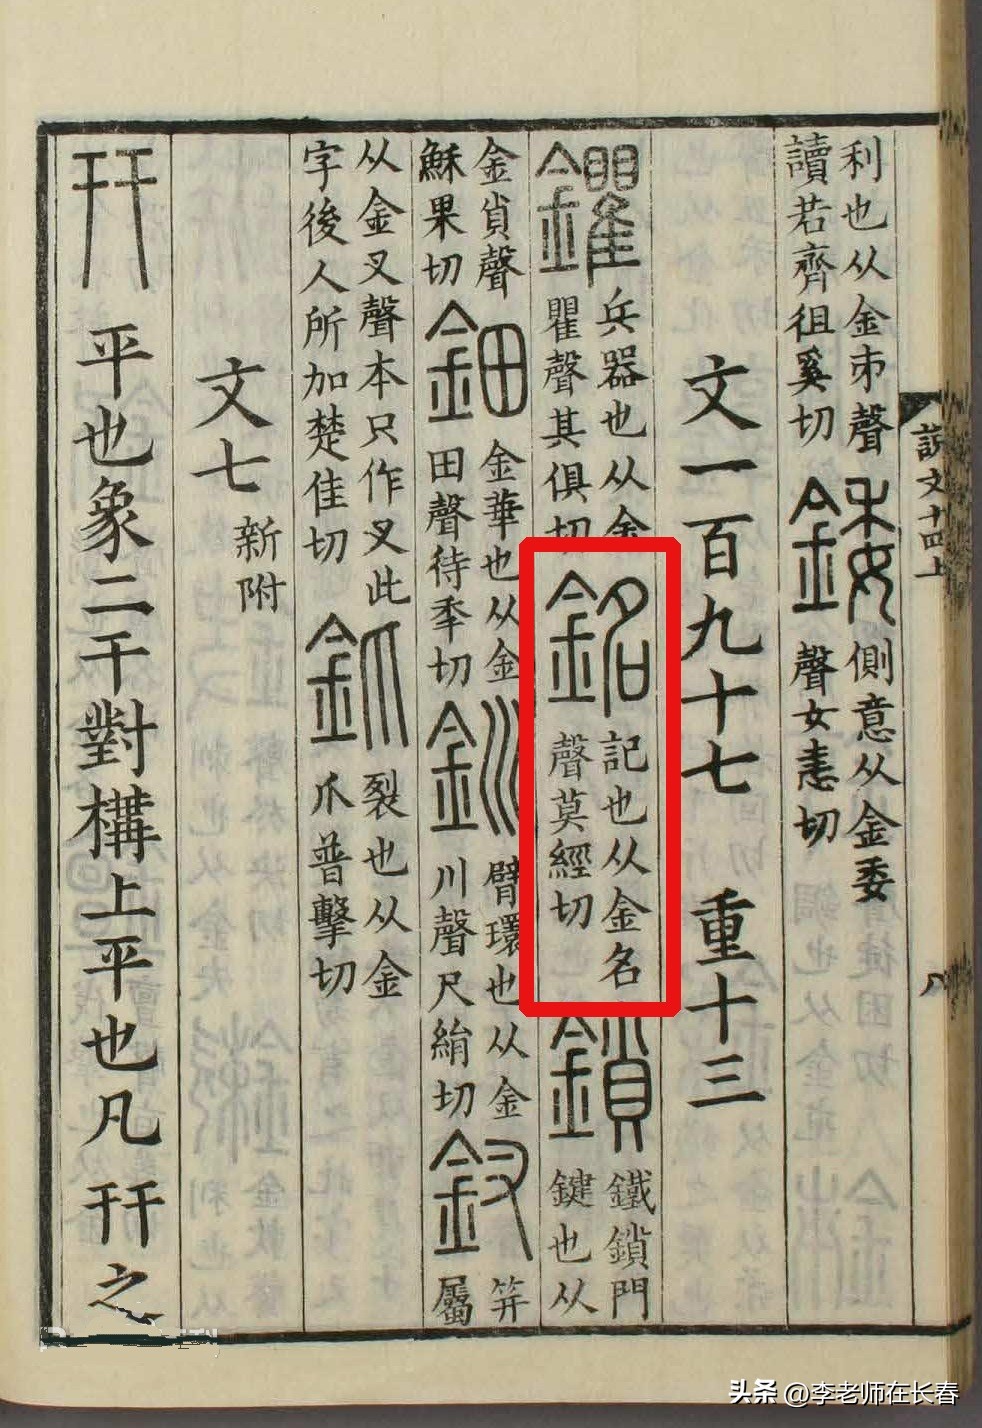 説文十四上
利也从金𠂔聲讀若齊徂奚切 錗 側意从金委聲女恚切
文一百九十七 重十三
鑺 兵器也从金瞿聲其俱切 銘 記也从金名聲莫經切 鎖 鐵鎖門鍵也从
金𧴪聲穌果切 鈿 金華也从金田聲待秊切 釧 臂環也从金川聲尺絹切 釵 笄屬
从金叉聲本只作叉此字後人所加楚佳切 釽 裂也从金爪普擊切
文七 新附
幵 平也象二干對構上平也凡幵之
头条 @李老师在长春